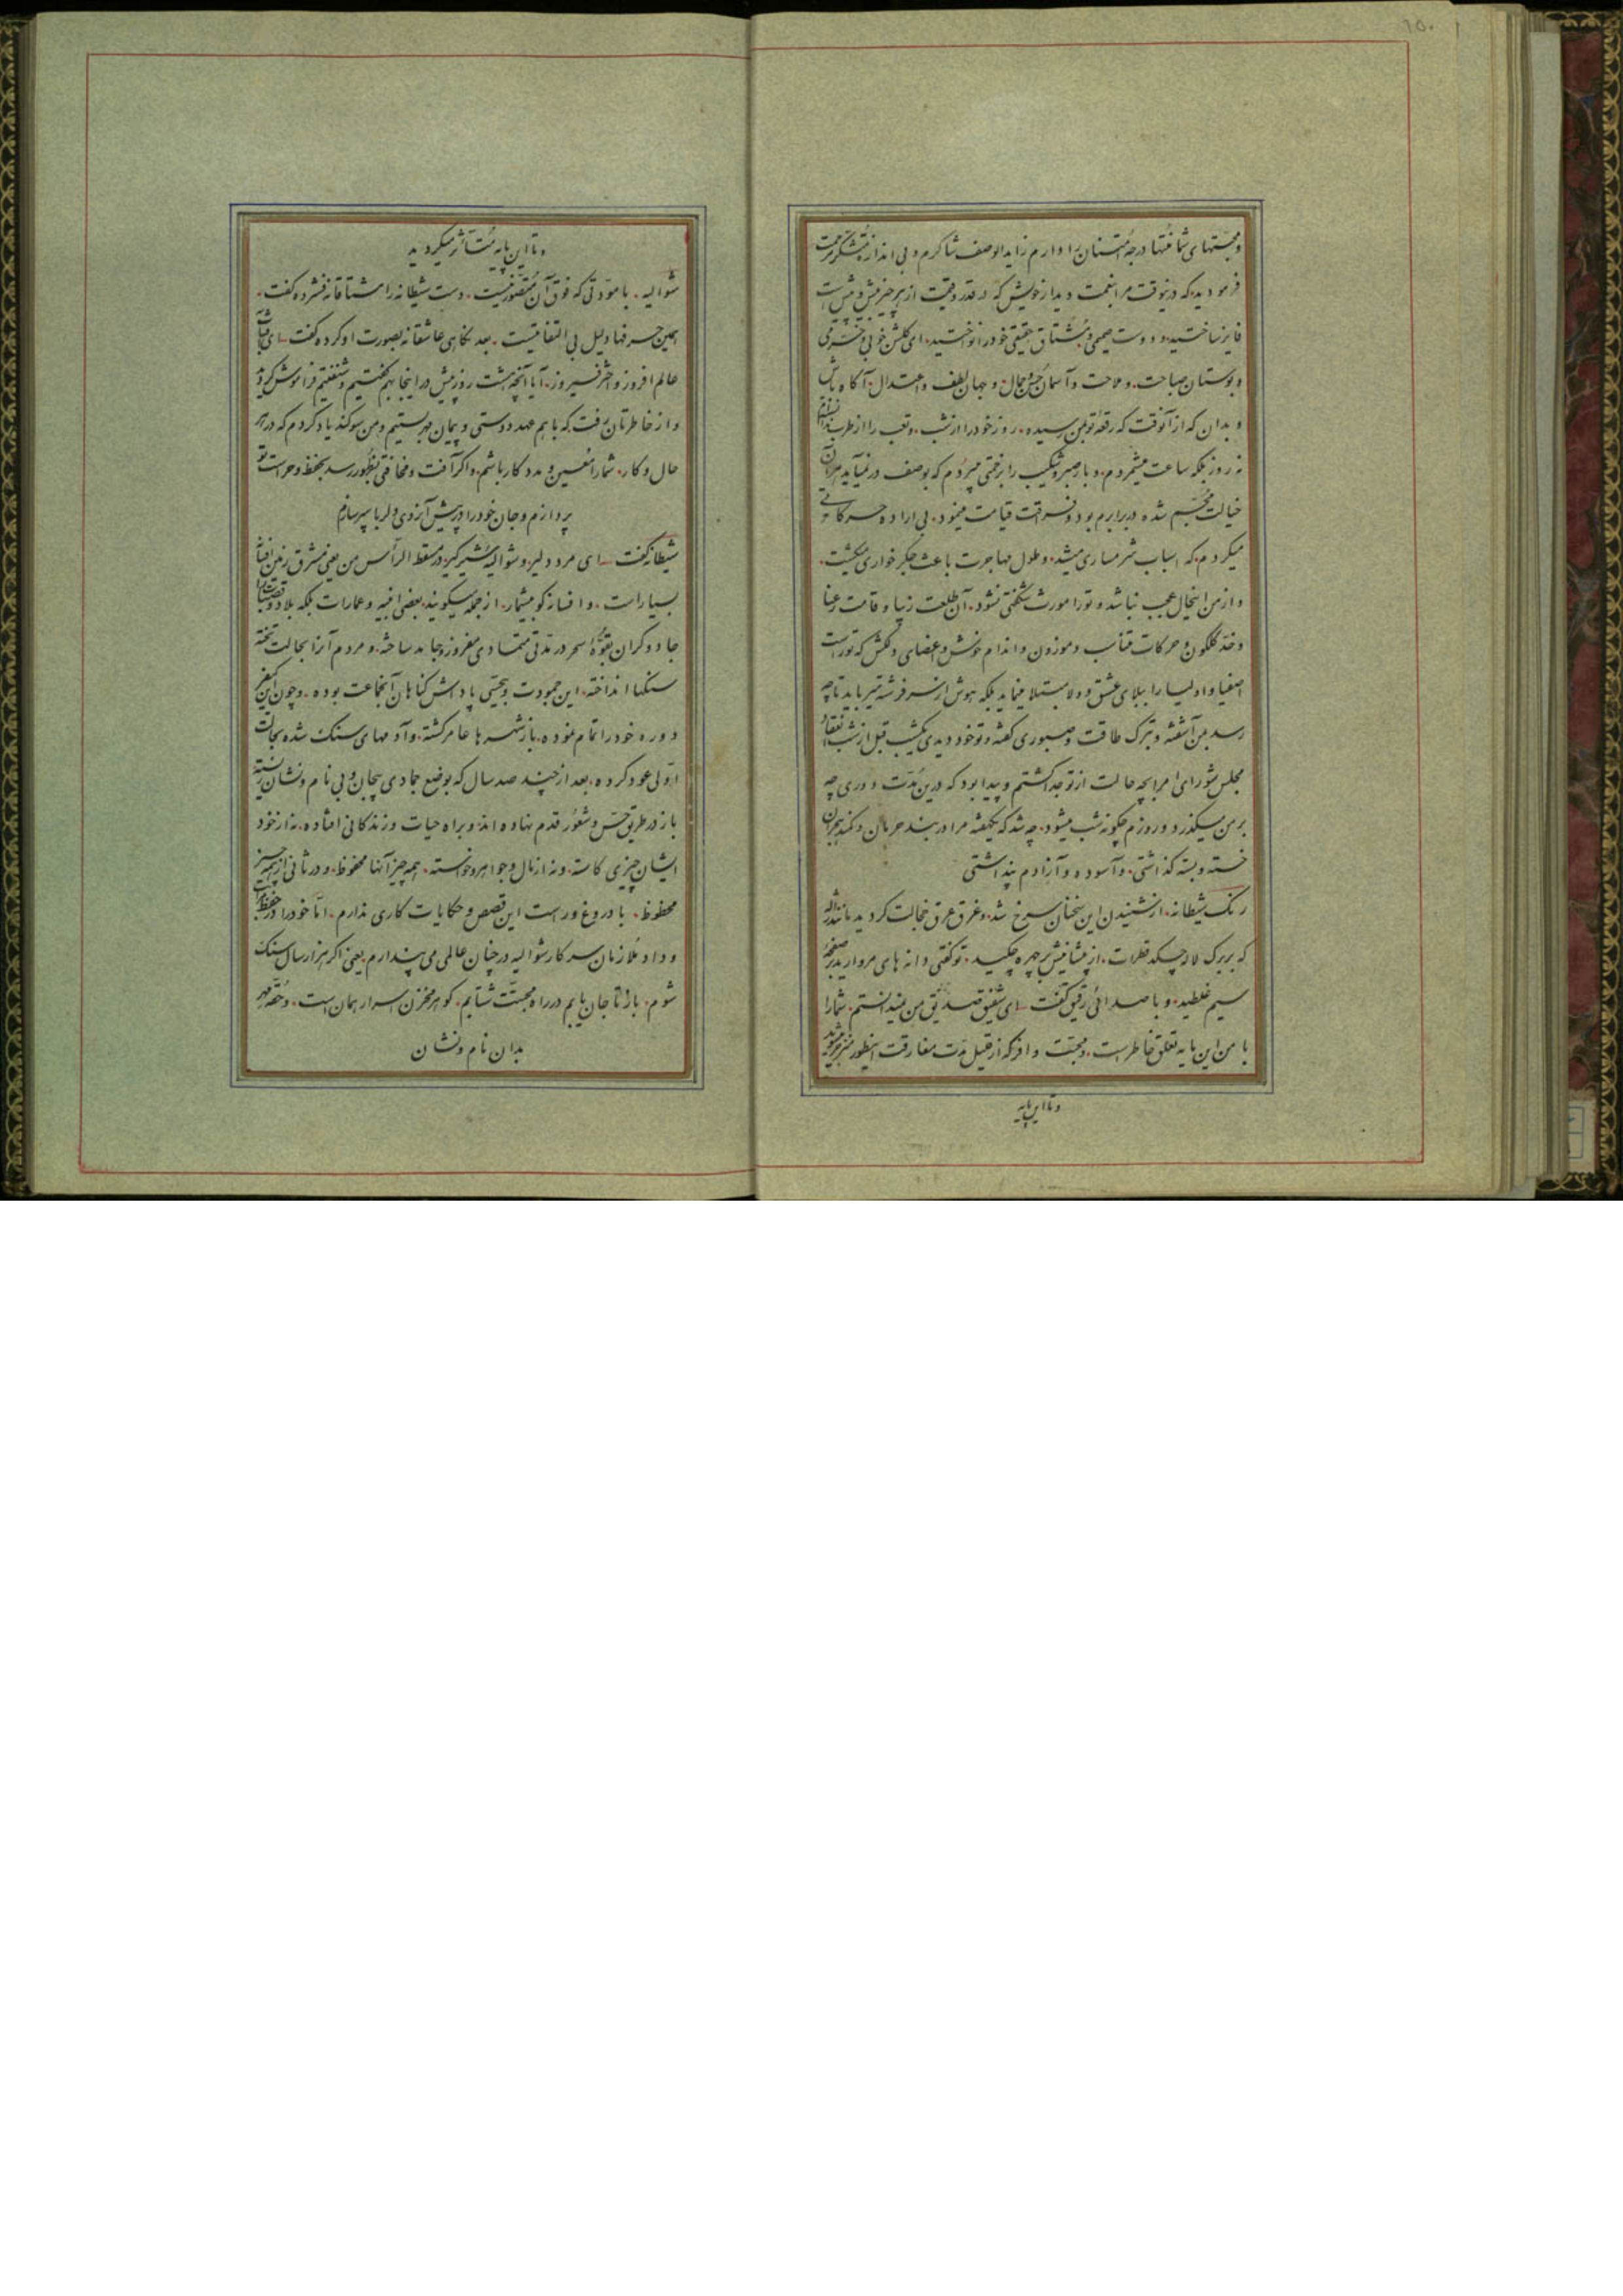 ۱۵۰
و محبتهای شما منتها درجهٔ امتنان را دارم زاید الوصف شاکرم و بی اندازه متشکر مرحمت
فرمودید که درینوقت مرا بنعمت دیدار خویش که در قدر و قیمت از هر چیز بیش و پیش است
فایز ساختید و دوست صمیمی و مشتاق حقیقی خود را نواختید ای گلشن خوبی و خرمی
و بوستان صباحت و ملاحت و آسمان حسن و جمال و جهان لطف و اعتدال آگاه باش
و بدان که از آنوقت که رقعهٔ تو بمن رسیده روز خود را از شب و تعب را از طرب
نه روز بلکه ساعت میشمردم و بار صبر و شکیب را بزحمتی میبردم که بوصف در نمیآید هر آن
خیالت مجسم شده در برابرم بود و فرقت قیامت مینمود بی اراده حرکاتی
میکردم که اسباب شرمساری میشد و طول مهاجرت باعث جگر خواری میگشت
و از من اینحال عجب نباشد و تو را مورث شگفتی نشود آن طلعت زیبا و قامت رعنا
و خد گلگون و حرکات متناسب و موزون و اندام خوش و اعضای دلکش که تو راست
اصفیا و اولیا را ببلای عشق و ولا مبتلا مینماید بلکه هوش از سر فرشته میرباید تا چه
رسد بمن آشفته و بترک طاقت و صبوری گفته و تو خود دیدی یکشب قبل از شب انعقاد
مجلس شورای امرا بچه حالت از تو جدا گشتم و پیدا بود که درین مدت دوری چه
بر من میگذرد و روزم چگونه شب میشود چه شد که یکهفته مرا در بند حرمان و کمند هجران
خسته و بسته گذاشتی و آسوده و آزادم پنداشتی
رنگ شیطانه از شنیدن این سخنان سرخ شد و غرق عرق خجالت گردید مانند ژاله
که بر برگ لاله چکد قطرات از پیشانیش بر چهره چکید تو گفتی دانه های مروارید بر صفحهٔ
سیم غلطید و با صدائی رقیق گفت ای شفیق صدیق من نمیدانستم شما را
با من این پایه تعلق خاطر است و محبت وافر که از قلیل مدت مفارقت اینطور منزجر میشوید
و تا این پایه
و تا این پایه متأثر میگردید
شوالیه با مودتی که فوق آن متصور نیست دست شیطانه را مشتاقانه فشرده گفت
همین حرفها دلیل بی التفاتیست بعد نگاهی عاشقانه بصورت او کرده گفت ای آفتاب
عالم افروز و اختر فیروز آیا آنچه هشت روز پیش در اینجا بهم گفتیم و شنفتیم فراموش کردید
و از خاطرتان رفت که با هم عهد دوستی و پیمان مهر بستیم و من سوگند یاد کردم که در هر
حال و کار شما را معین و مددکار باشم و اگر آفت و مخافتی بظهور رسد بحفظ و حراست تو
پردازم و جان خود را در پیش آرزوی دلربا سپر سازم
شیطانه گفت ای مرد دلیر و شوالیهٔ شیرگیر در مسقط الرأس من یعنی مشرق زمین افسانه
بسیار است و افسانه گو بیشمار از جمله میگویند بعضی ابنیه و عمارات بلکه بلاد و قصبات را
جادوگران بقوهٔ سحر در مدتی متمادی مفروز و جامد ساخته و مردم آنرا بحالت تخته
سنگها انداخته این جمودت و بیحسی پاداش گناهان آنجماعت بوده و چون این کیفر
دوره خود را تمام نموده باز شهرها عامر گشته و آدمهای سنگ شده بحالت
اولی عود کرده بعد از چند صد سال که بوضع جمادی بیجان و بی نام و نشان زیسته
باز در طریق حس و شعور قدم نهاده اند و براه حیات و زندگانی افتاده نه از خود
ایشان چیزی کاسته و نه از مال و جواهر و خواسته همه چیز آنها محفوظ و در ثانی از همه چیز
محظوظ با دروغ و راست این قصص و حکایات کاری ندارم اما خود را در حفظ
و داد ملازمان سرکار شوالیه در چنان عالمی می پندارم یعنی اگر هزار سال سنگ
شوم باز تا جان یابم در راه محبت شتابم گوهر مخزن اسرار همان است و حقهٔ مهر
بدان نام و نشان